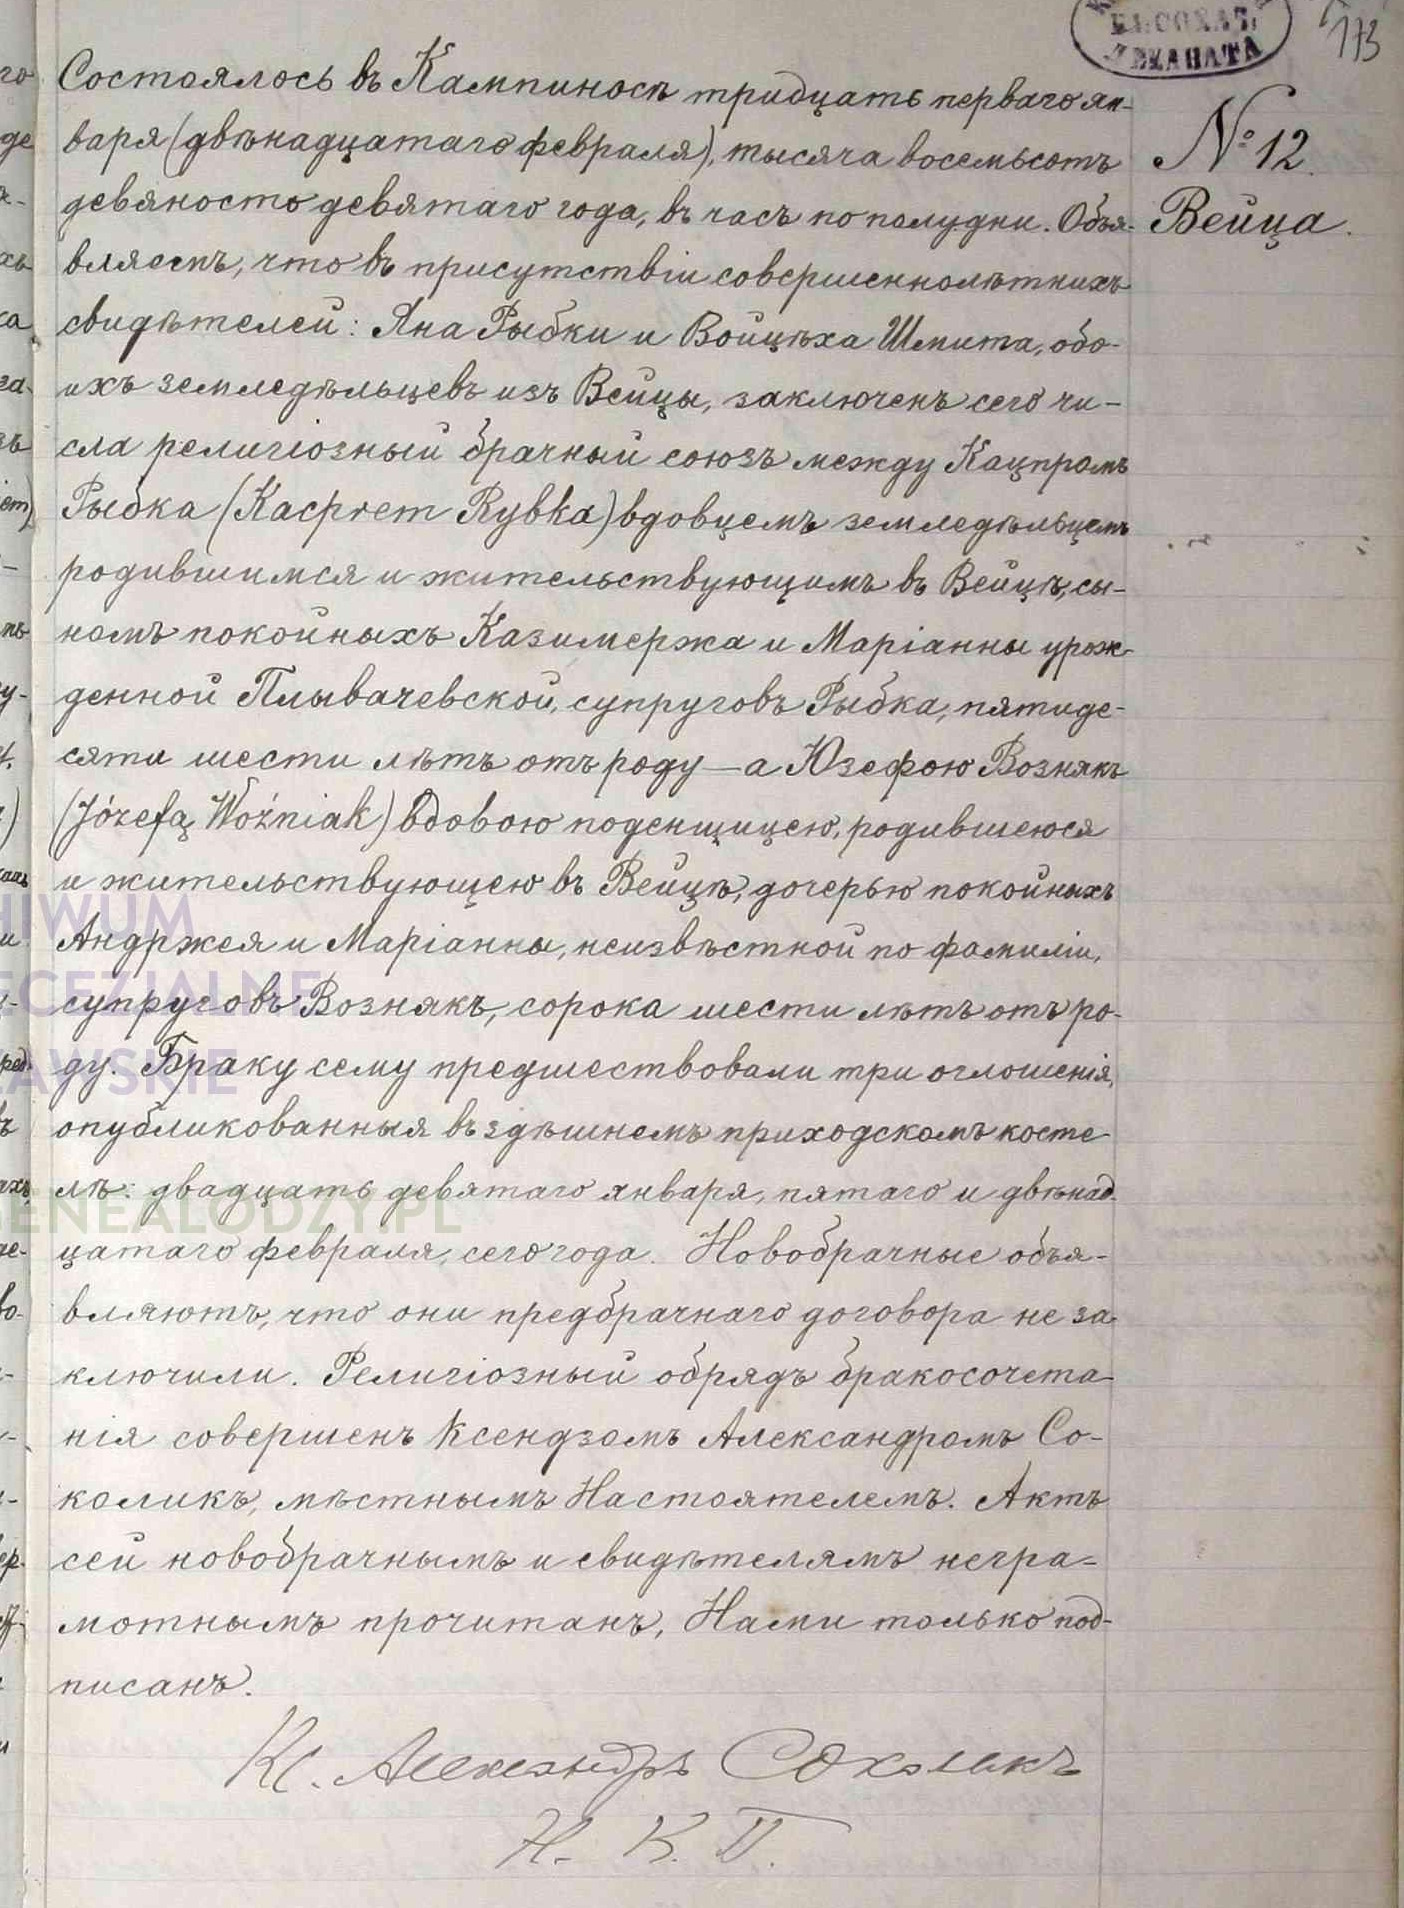 173
ДЕКАНАТА
№ 12.
Вейца.
Состоялось въ Кампиносѣ тридцать перваго ян-
варя (двѣнадцатаго февраля), тысяча восемьсотъ
девяносто девятаго года, въ часъ по полудни. Объя-
вляемъ, что въ присутствіи совершеннолѣтнихъ
свидѣтелей: Яна Рыбки и Войцѣха Шмита, обо-
ихъ земледѣльцевъ изъ Вейцы, заключенъ сего чи-
сла религіозный брачный союзъ между Кацпромъ
Рыбка (Kacprem Rybka) вдовцемъ земледѣльцемъ
родившимся и жительствующимъ въ Вейцѣ, сы-
номъ покойныхъ Казимержа и Маріанны урож-
денной Плывачевской, супруговъ Рыбка, пятиде-
сяти шести лѣтъ отъ роду — а Юзефою Вознякъ
(Józefą Woźniak) вдовою поденщицею, родившеюся
и жительствующею въ Вейцѣ, дочерью покойныхъ
Андржея и Маріанны, неизвѣстной по фамиліи,
супруговъ Вознякъ, сорока шести лѣтъ отъ ро-
ду. Браку сему предшествовали три оглошенія,
опубликованныя въ здѣшнемъ приходскомъ косте-
лѣ: двадцать девятаго января, пятаго и двѣнад-
цатаго февраля, сего года. Новобрачные объя-
вляютъ, что они предбрачнаго договора не за-
ключили. Религіозный обрядъ бракосочета-
нія совершенъ Ксендзомъ Александромъ Со-
коликъ, мѣстнымъ Настоятелемъ. Актъ
сей новобрачнымъ и свидѣтелямъ негра-
мотнымъ прочитанъ, Нами только под-
писанъ.
Кс. Александръ Соколикъ
Н. К. П.